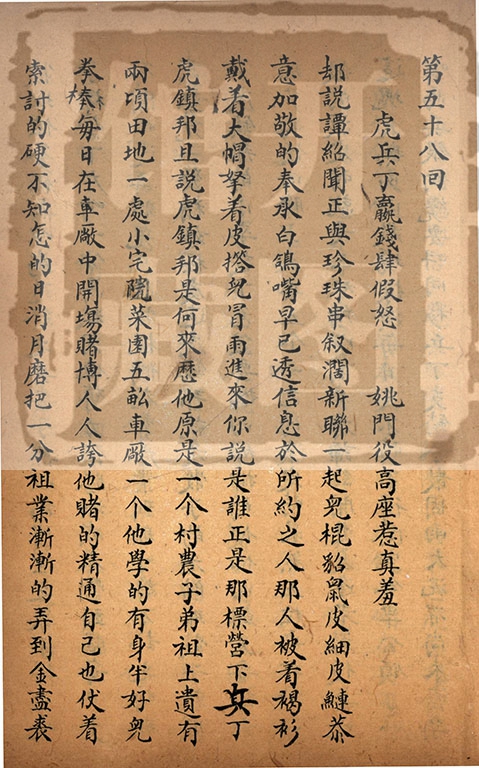 第五十八回
虎兵丁贏錢肆假怒　姚門役高座惹真羞
却説譚紹聞正與珍珠串叙濶新聯一起兒棍貂鼠皮細皮鰱恭
意加敬的奉承白鴿嘴早已透信息於所約之人那人被着褐衫
戴着大帽拏着皮撘兒冒雨進來你説是誰正是那標營下兵丁
虎鎮邦且説虎鎮邦是何來歷他原是一个村農子弟祖上遺有
兩頃田地一處小宅院菜園五畝車廠一个他學的有身半好兒
拳棒每日在車廠中開塲賭博人人誇他賭的精通自己也伏着
索討的硬不知怎的日消月磨把一分祖業漸漸的弄到金盡裘